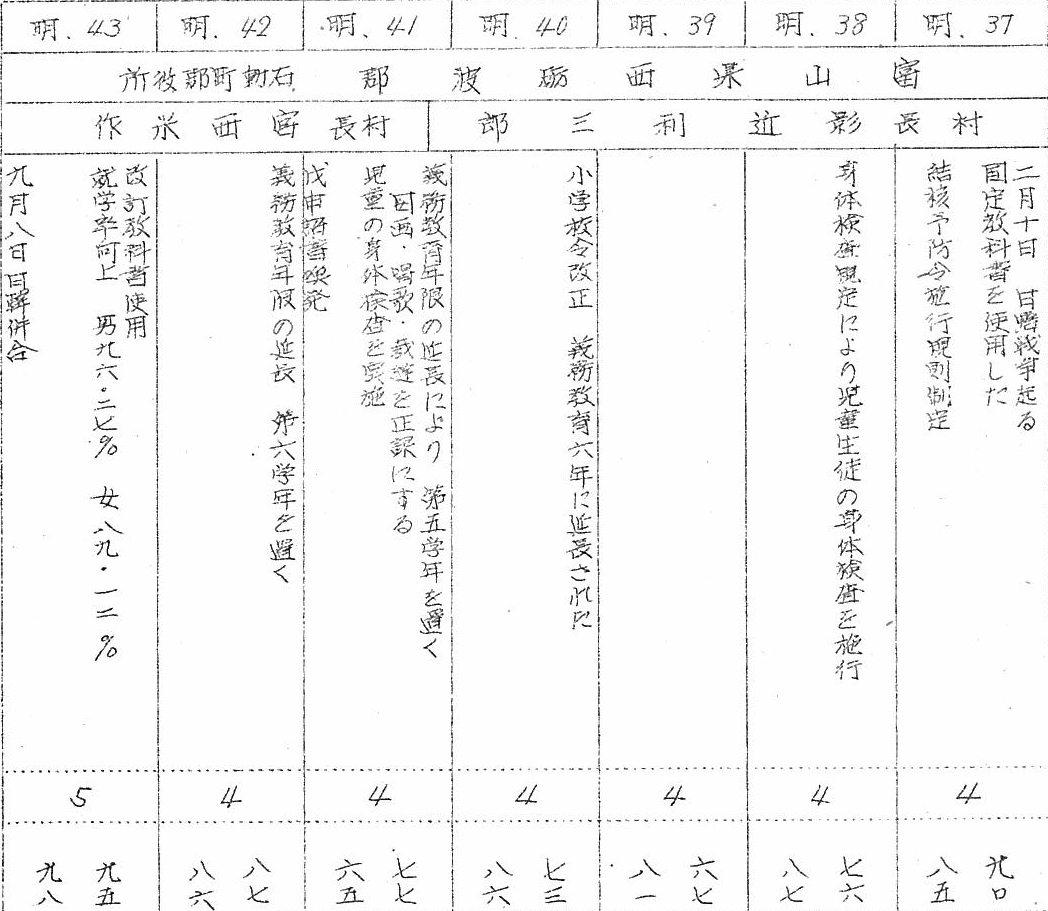 明.37
明.38
明.39
明.40
明.41
明.42
明.43
富山県西砺波郡
石動町郡役所
村長影近利三郎
村長宮西米作
二月十日 日露戦争起る
国定教科書を使用した
結核予防令施行規則制定
身体検査規定により児童生徒の身体検査を施行
小学校令改正 義務教育六年に延長された
義務教育年限の延長により 第五学年を置く
図画・唱歌・裁縫を正課にする
児童の身体検査を実施
戊申詔書渙発
義務教育年限の延長 第六学年を置く
改訂教科書使用
就学率向上 男九六・二七% 女八九・一二%
九月八日日韓併合
4
4
4
4
4
4
5
九〇
八五
七六
八七
六七
八一
七三
八六
七七
六五
八七
八六
九五
九八